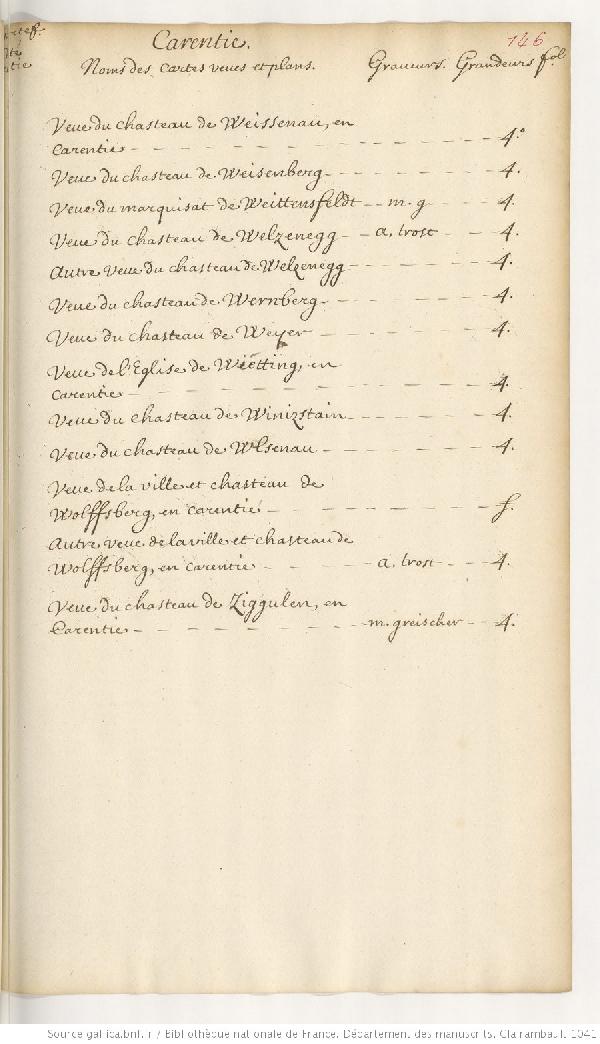 Carentie. 146
Noms des cartes veues et plans. Graveurs. Grandeurs fol.
Veue du chasteau de Weissenau, en
Carentie - - - - - 4.°
Veue du chasteau de Weisenberg - - - - - 4.
Veue du marquisat de Weittensfeldt - - m. g - - - 4.
Veue du chasteau de Welzenegg - - a. trost - - - 4.
Autre veue du chasteau de Welzenegg - - - - - 4.
Veue du chasteau de Wernberg - - - - - 4.
Veue du chasteau de Weyer - - - - - 4.
Veue de l'Eglise de Wietting, en
Carentie - - - - - 4.
Veue du chasteau de Winizstain - - - - - 4.
Veue du chasteau de Wlsenau - - - - - 4.
Veue de la ville et chasteau de
Wolffsberg, en Carentie - - - - - f.
Autre veue de la ville et chasteau de
Wolffsberg, en Carentie - - - a. trost - - 4.
Veue du chasteau de Ziggulen, en
Carentie - - - - - m. greischer - - 4.
Source gallica.bnf.fr / Bibliothèque nationale de France. Département des manuscrits. Clairambault 1041